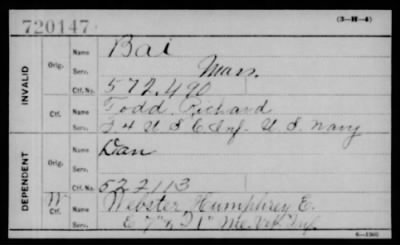 720147.
(3-H-4)
INVALID
Orig.
Name Bai
Serv. Mass.
Ctf. No. 572,490
Ctf.
Name Todd Richard
Serv. F 4 U S C Inf. U S Navy
DEPENDENT
Orig.
Name Dan
Serv.
Ctf. No. 522113
W
Ctf.
Name Webster Humphrey E.
Serv. E 7" & 21" Me. Vol. Inf.